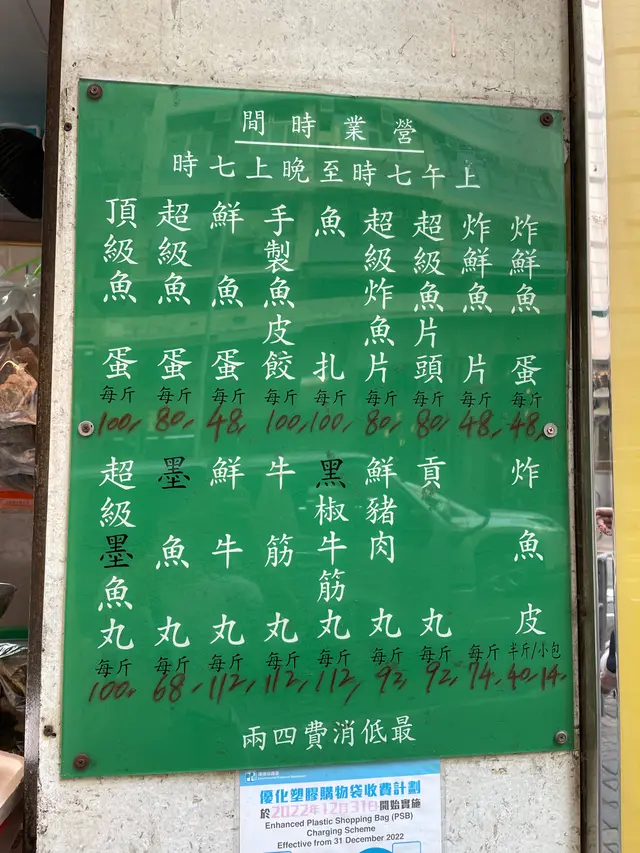 營業時間
上午七時至晚上七時
炸鮮魚蛋 每斤 48,
炸鮮魚片 每斤 48,
超級魚片頭 每斤 80,
超級炸魚片 每斤 80,
魚扎 每斤 100,
手製魚皮餃 每斤 100,
鮮魚蛋 每斤 48,
超級魚蛋 每斤 80,
頂級魚蛋 每斤 100,
炸魚皮 每斤 半斤/小包 74, 40, 14,
貢丸 每斤 92,
鮮豬肉丸 每斤 92,
黑椒牛筋丸 每斤 112,
牛筋丸 每斤 112,
鮮牛丸 每斤 112,
墨魚丸 每斤 68,
超級墨魚丸 每斤 100,
最低消費四兩
優化塑膠購物袋收費計劃
於2022年12月31日開始實施
Enhanced Plastic Shopping Bag (PSB)
Charging Scheme
Effective from 31 December 2022